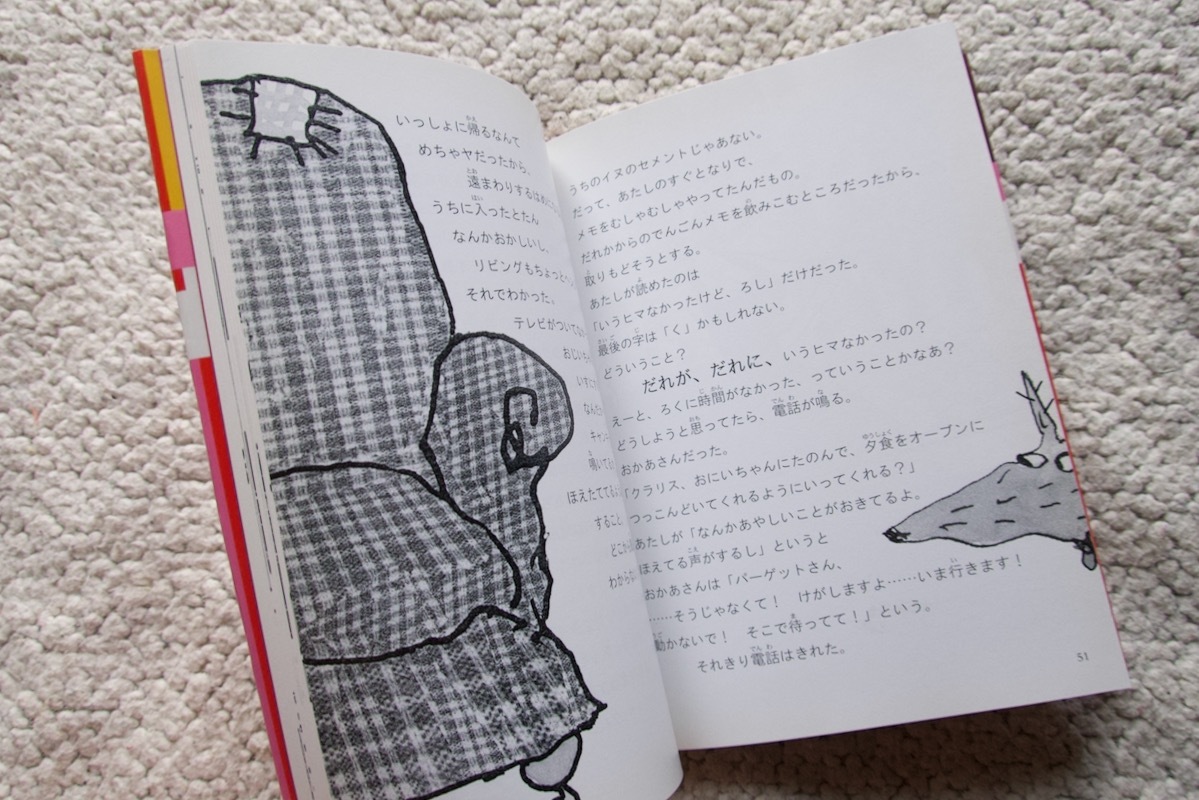 いっしょに帰るなんて
めちゃヤだったから、
遠まわりするはめに
うちに入ったとたん
なんかおかしいし、
リビングもちょっと
それでわかった。
テレビがついて
おじい
いすに
なんだ
キャン
鳴いて
ほえたてて
すること
どこか
わからな
うちのイヌのセメントじゃあない。
だって、あたしのすぐとなりで、
メモをむしゃむしゃやってたんだもの。
だれかからのでんごんメモを飲みこむところだったから、
取りもどそうとする。
あたしが読めたのは
「いうヒマなかったけど、ろし」だけだった。
最後の字は「く」かもしれない。
どういうこと？
だれが、だれに、いうヒマなかったの？
えーと、ろくに時間がなかった、っていうことかなあ？
どうしようと思ってたら、電話が鳴る。
おかあさんだった。
「クラリス、おにいちゃんにたのんで、夕食をオーブンに
つっこんどいてくれるようにいってくれる？」
あたしが「なんかあやしいことがおきてるよ。
ほえてる声がするし」というと
おかあさんは「パーゲットさん、
……そうじゃなくて！　けがしますよ……いま行きます！
動かないで！　そこで待ってて！」という。
それきり電話はきれた。
51